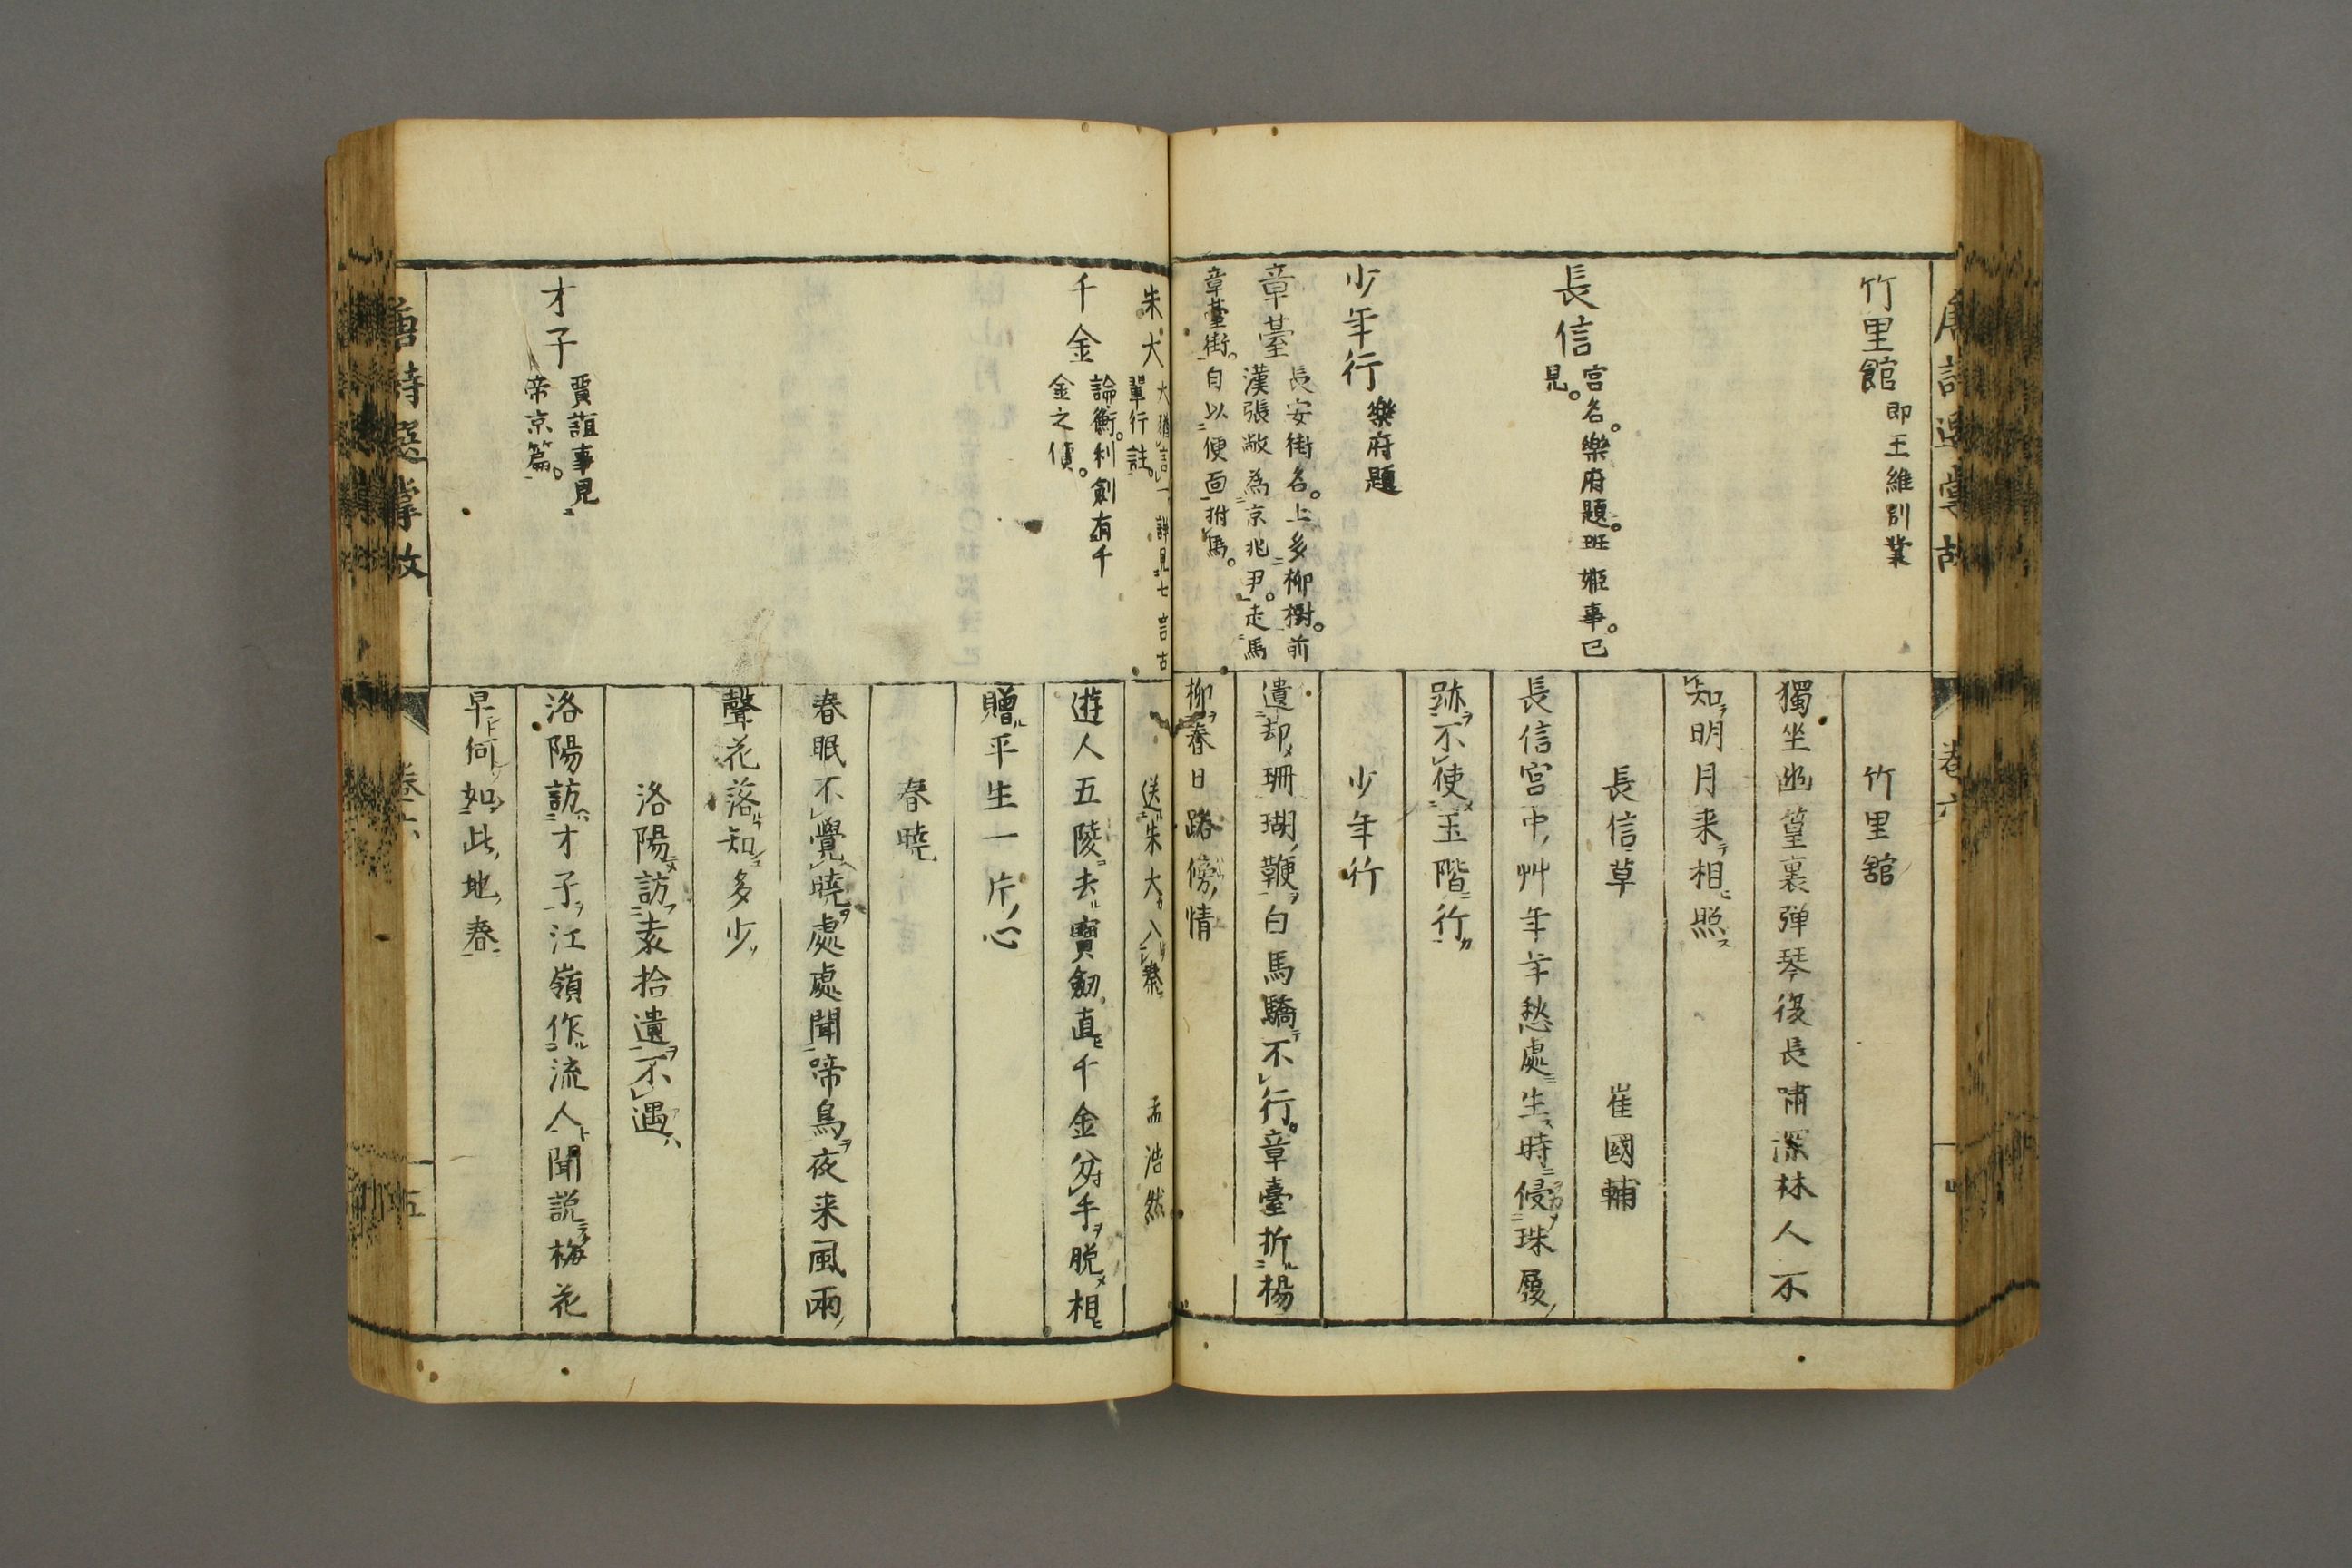 竹里館 即王維別業
長信 宮名。樂府題。班姬事。已
見。
少年行 樂府題
章臺 長安街名。上多柳樹。前
漢張敞為京兆尹。走馬
章臺街。自以便面拊馬。
竹里館
獨坐幽篁裏彈琴復長嘯深林人不
知明月来相照
長信草 崔國輔
長信宮中艸年年愁處生時侵珠履
跡不使玉階行
少年行
遺却珊瑚鞭白馬驕不行章臺折楊
柳春日路傍情
朱大 大猶信一
輩行註。詳見七言古
千金 論衡。利劍有千
金之價。
才子 賈誼事見
帝京篇。
送朱大入秦 孟浩然
遊人五陵去寶劒直千金分手脱相
贈平生一片心
春曉
春眠不覺曉處處聞啼鳥夜来風雨
聲花落知多少
洛陽訪袁拾遺不遇
洛陽訪才子江嶺作流人聞説梅花
早何如此地春
卷六
五